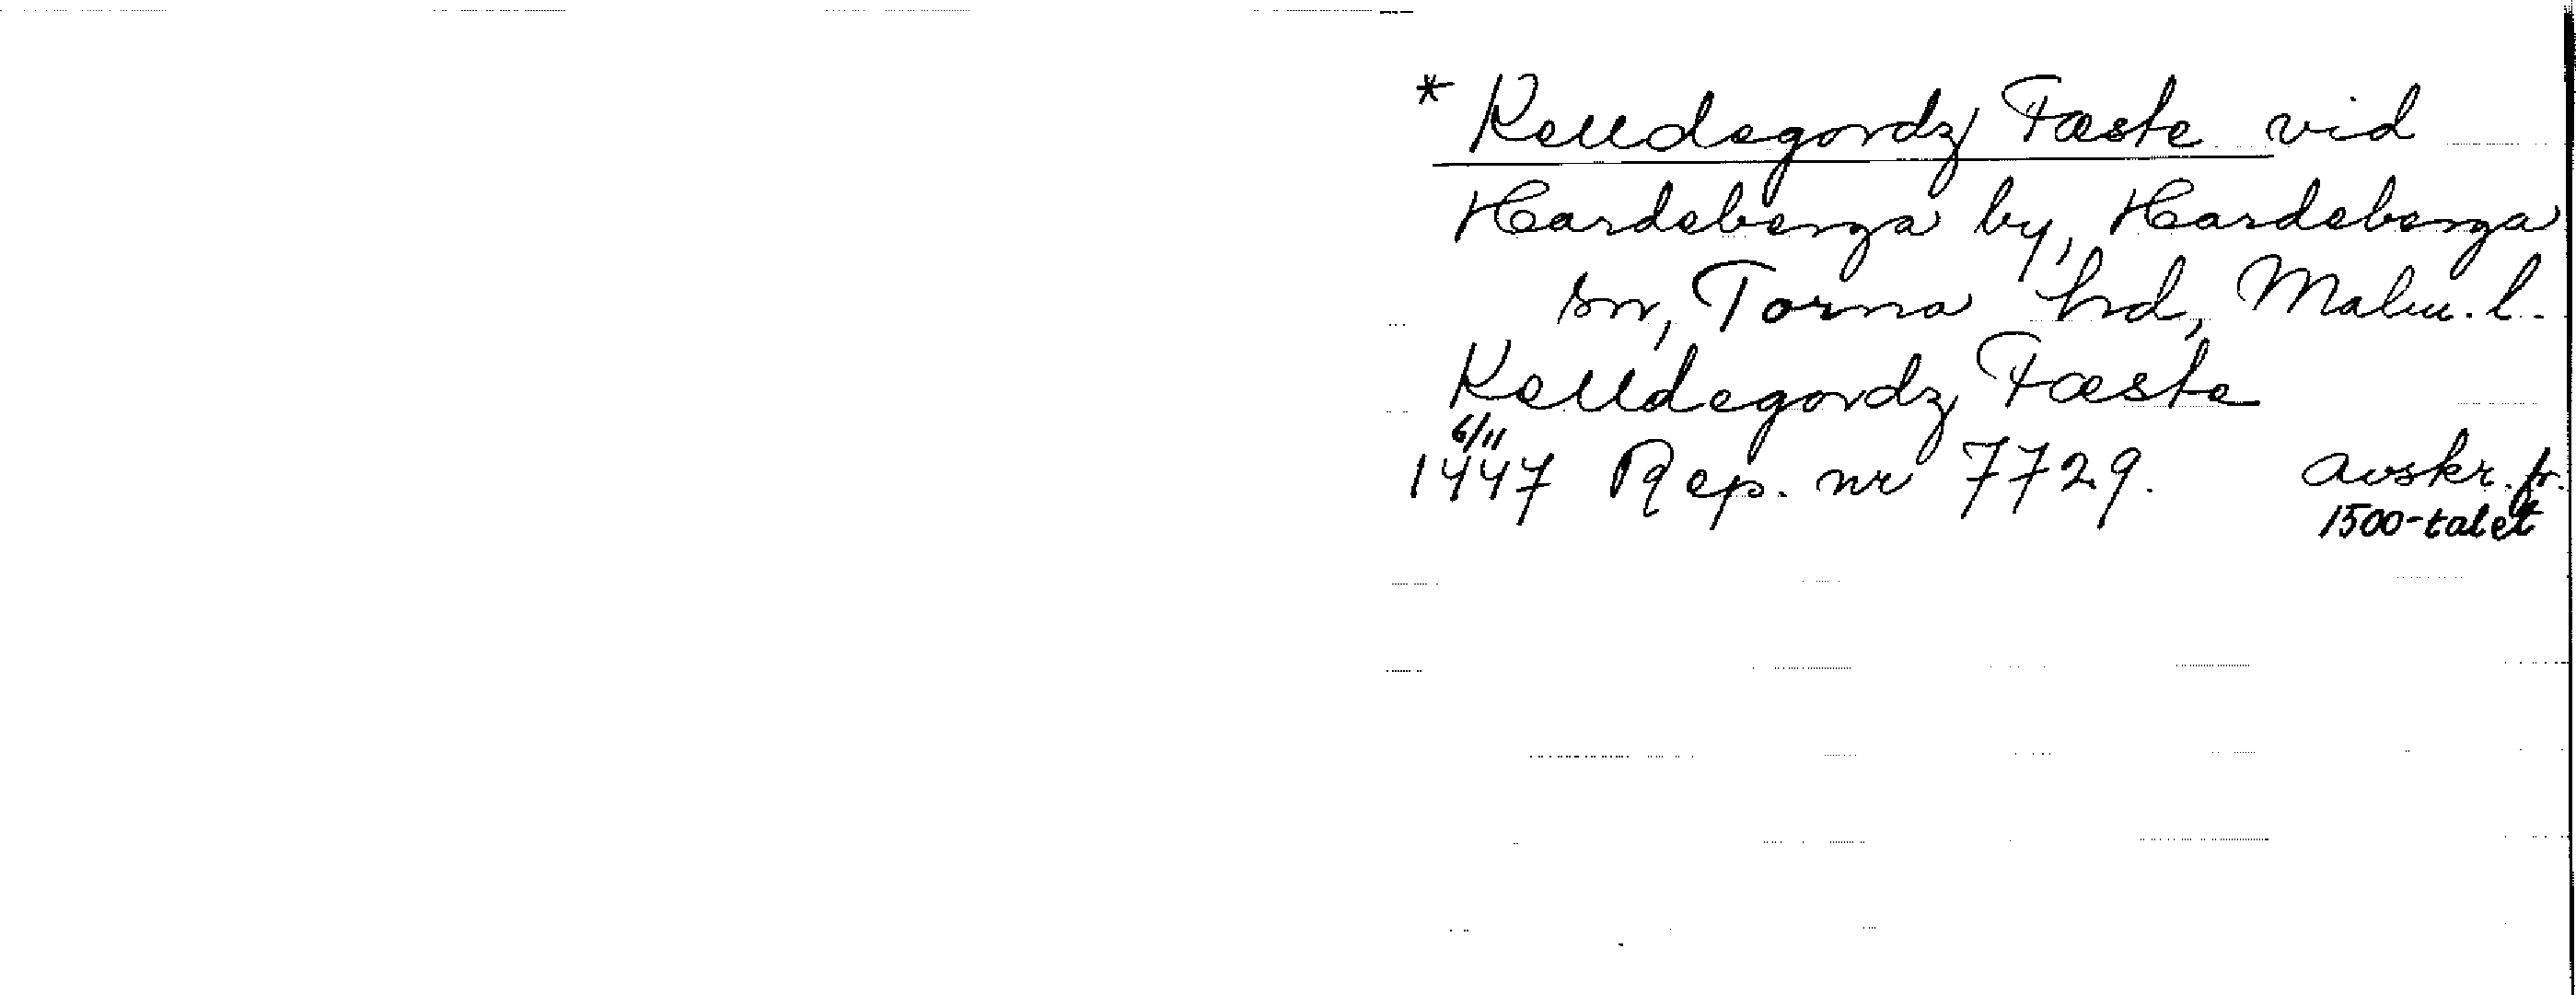 * Kelldegordz Fæste vid
Hardeberga by, Hardeberga
sn, Torna hd, Malm. l.
Kelldegordz Fæste
6/11
1447 Rep. nr 7729. Avskr. fr.
1500-talet